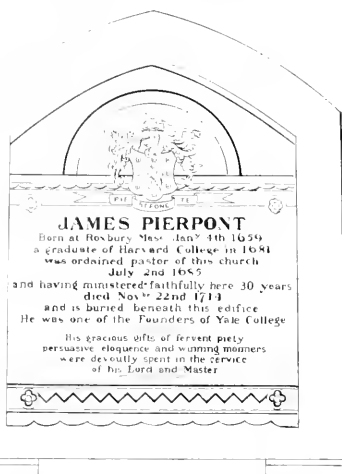 PIE REPONE TE
JAMES PIERPONT
Born at Roxbury Mass Jany 4th 1659
a graduate of Harvard College in 1681
was ordained pastor of this church
July 2nd 1685
and having ministered faithfully here 30 years
died Novbr 22nd 1714
and is buried beneath this edifice
He was one of the Founders of Yale College
His gracious gifts of fervent piety
persuasive eloquence and winning manners
were devoutly spent in the service
of his Lord and Master